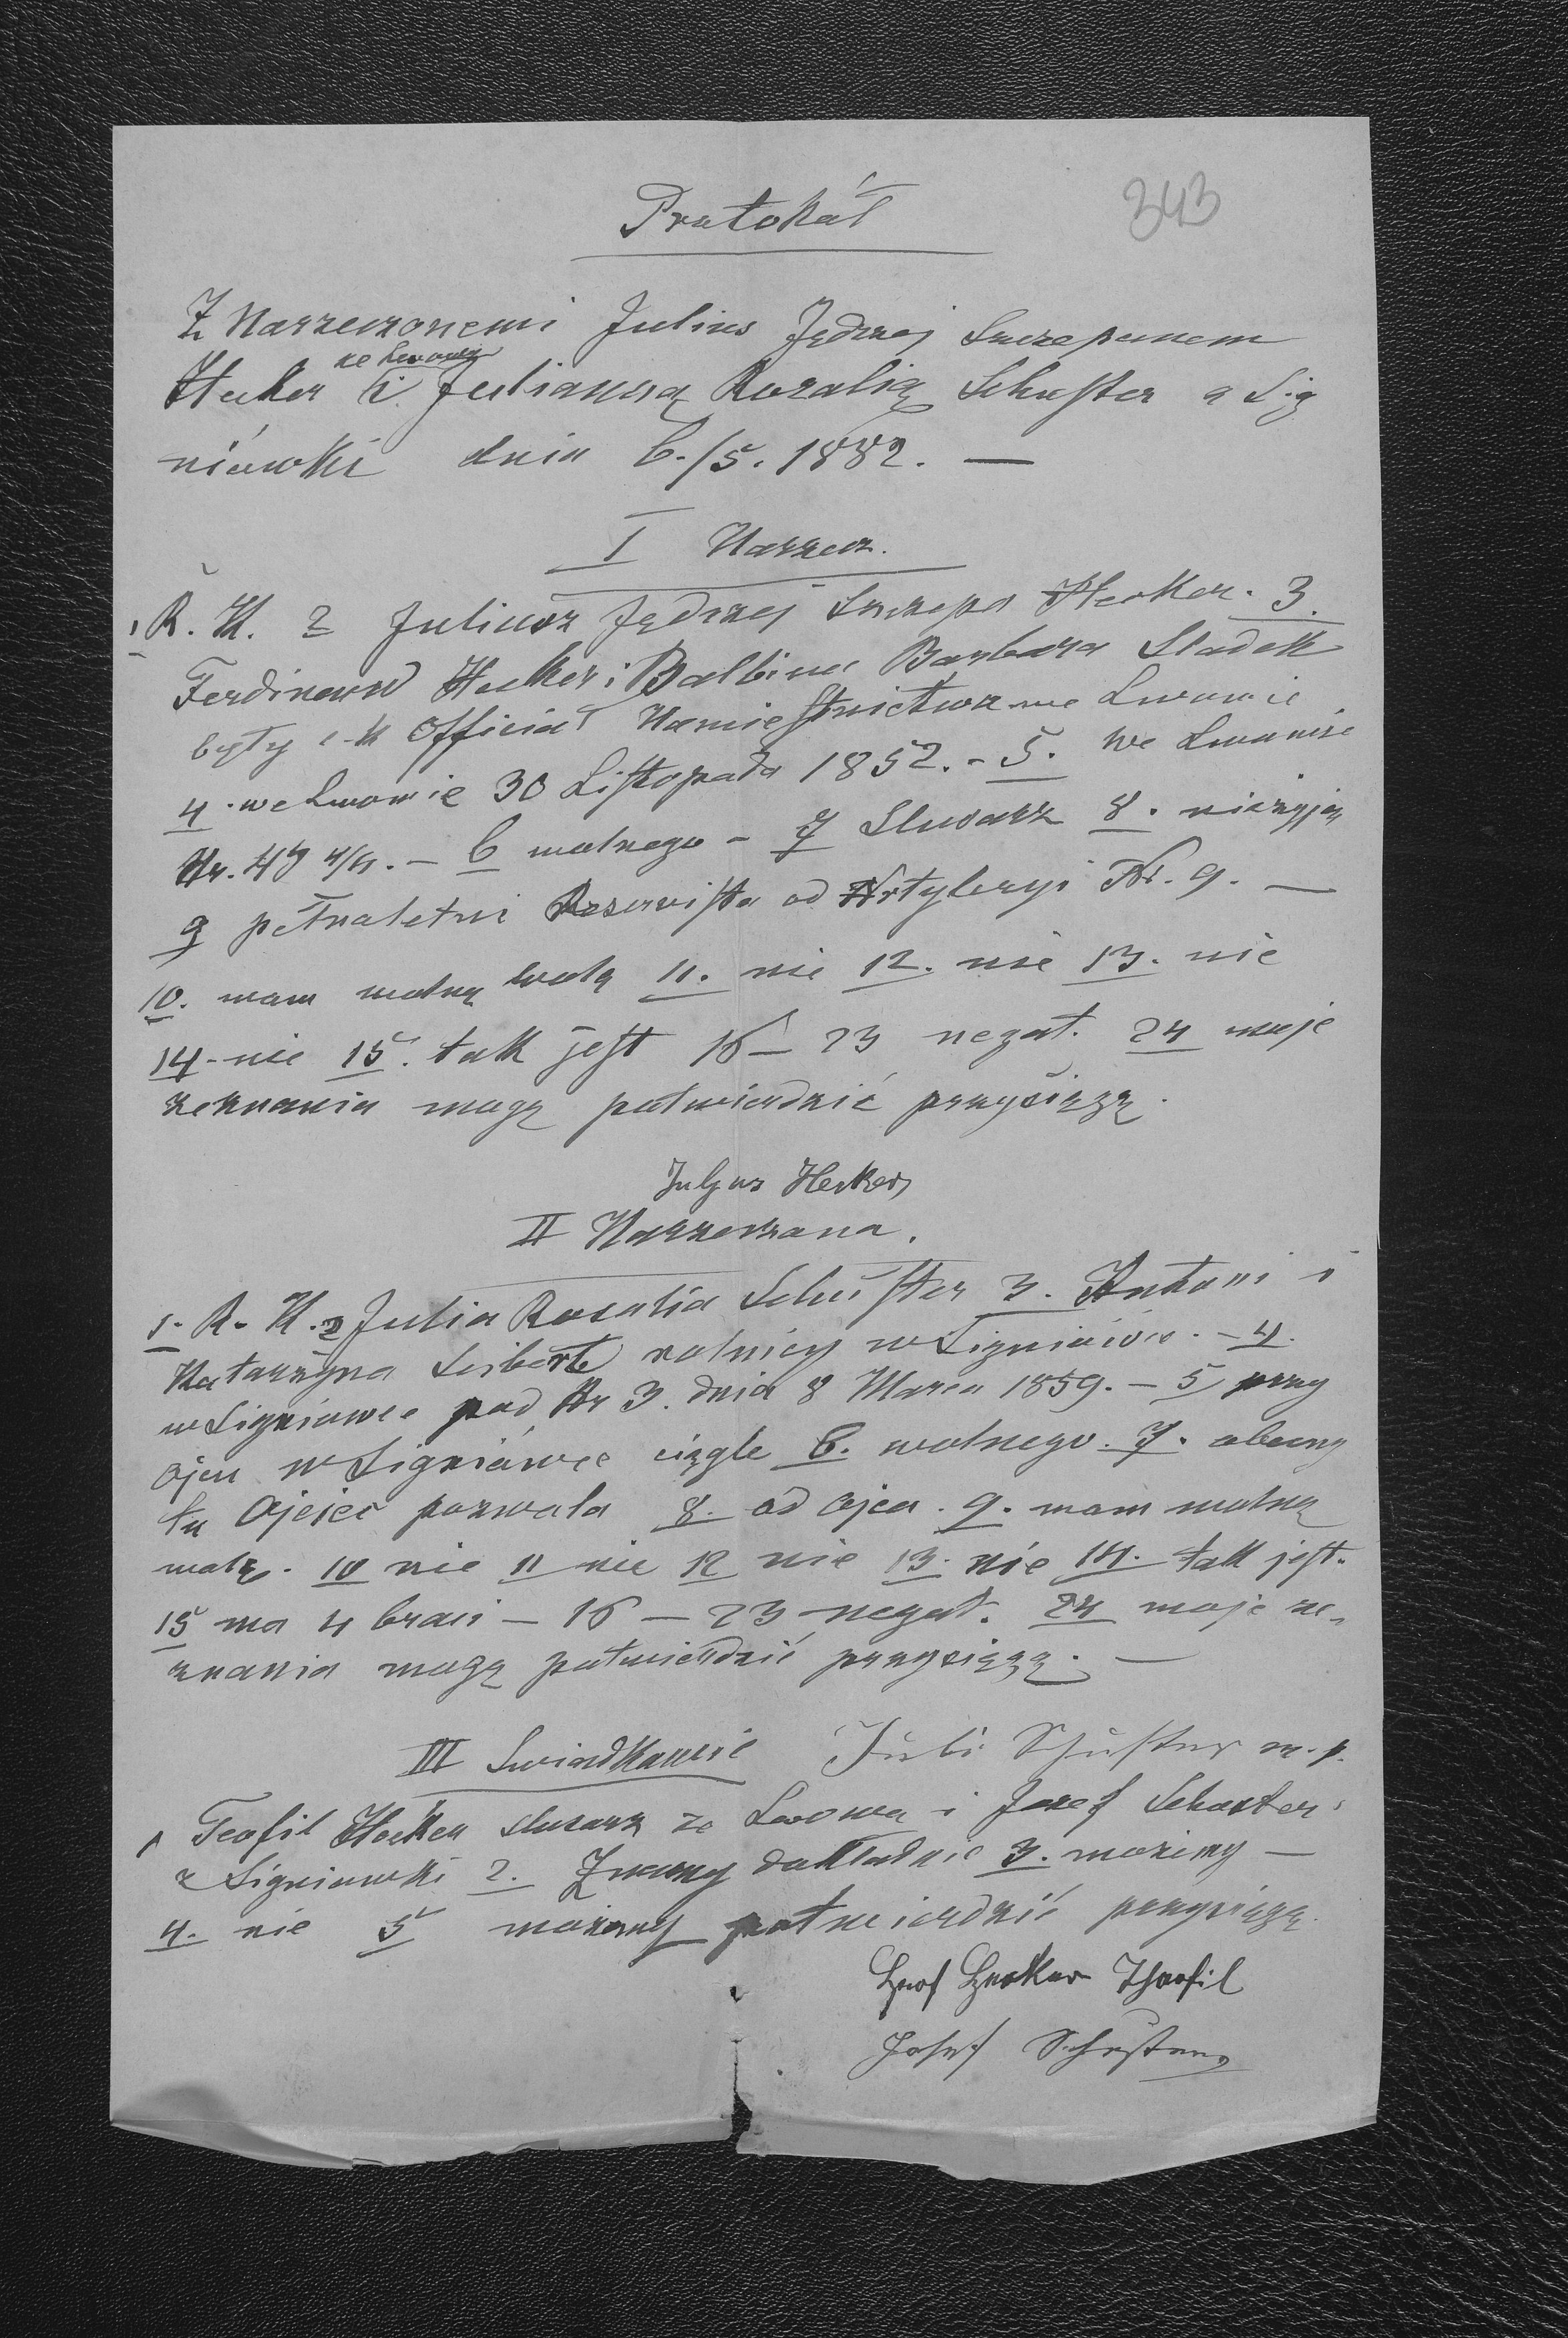 Protokół
343
Z Narzeczonemi Julius Jędrzej Szczepanem
ze Lwowa
Hecker i Julianną Rozalią Schuster z Sig
niówki dnia 6./5. 1882. —
I Narzecz.
1 R. K. 2 Juliusz Jędrzej Szczepa Hecker. 3.
Ferdinand Hecker i Balbina Barbara Sladek
były c.k Officiał Namiestnictwa we Lwowie
4. we Lwowie 30 Listopada 1852. - 5. We Lwowie
Nr. 47 4/4. — 6 wolnego - 7 Slusarz 8. nieżyją
9 pełnoletni Reservista od Artyleryi Nr. 9. —
10. mam wolną wolą 11. nie 12. nie 13. nie
14. nie 15. tak jest 16 — 23 negat. 24 moje
zeznania mogę potwierdzić przysięgą.
Juljus Hecker
II Narzeczona.
1. R. K. 2 Julia Rozalia Schuster 3. Antoni i
Katarzyna Seibert rolnicy w Signiówce. - 4.
w Signiowce pod Nr 3. dnia 8 Marca 1859. — 5 przy
ojcu w Signiówce ciągle 6. wolnego. 7. obecny
tu Ojciec pozwala 8. od ojca. 9. mam wolną
wolę. 10 nie 11 nie 12 nie 13. nie 14. tak jest.
15 ma 4 braci — 16 — 23 negat. 24 moje ze-
znania mogę potwierdzić przysięgą. —
III Swiadkowie Juli Schuster m. p.
1 Teofil Hecker slusarz ze Lwowa i Jozef Schuster
z Signiowki 2. Znamy dokładnie 3. mozemy —
4. nie 5 możemy potwierdzić przysięgą.
Hecker Theofil
Josef Schuster